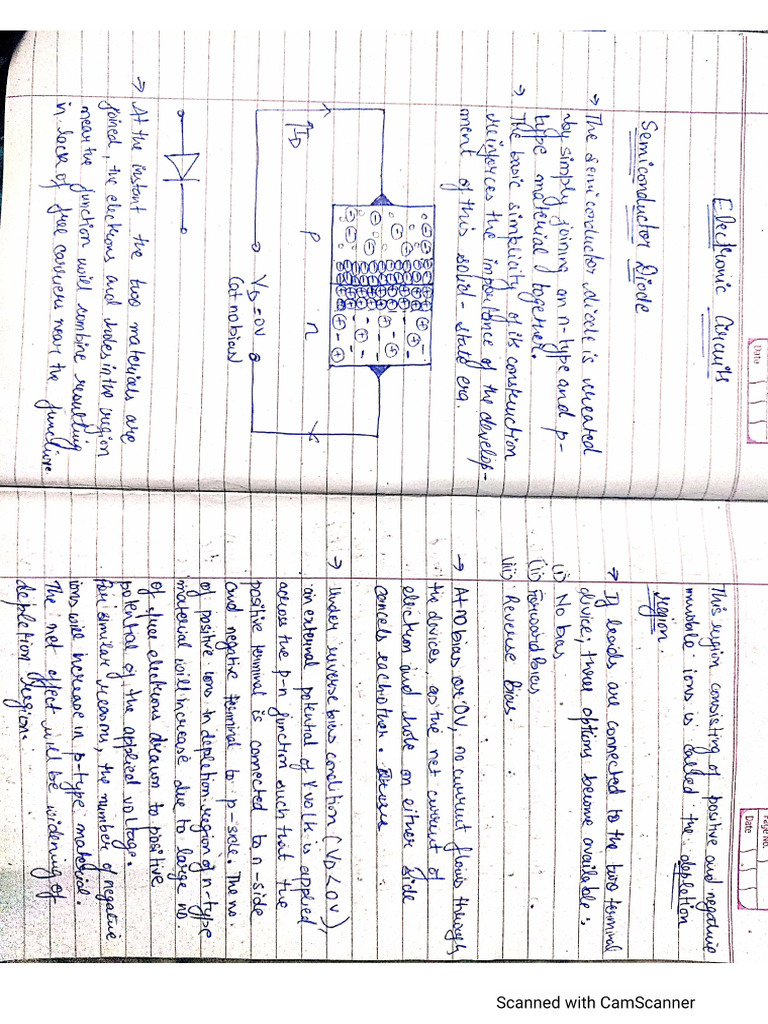 Date
Electronic Circuits
Semiconductor Diode
→ The semiconductor diode is created
by simply joining an n-type and p-
type material together.
→ The basic simplicity of its construction
reinforces the importance of the develop-
ment of this solid-state era.
I_D
p n
V_D = 0V
(at no bias)
→ At the instant the two materials are
joined, the electrons and holes in the region
near the junction will combine resulting
in lack of free carriers near the junction.
Page No.
Date
This region consisting of positive and negative
ions is called the depletion
region.
→ If leads are connected to the two terminal
device; three options become available:
(i) No bias
(ii) Forward Bias
(iii) Reverse Bias.
→ At no bias or 0V, no current flows through
the devices, as the net current of
electron and hole on either side
cancels each other.
→ Under reverse bias condition (V_D < 0V),
an external potential of V volt is applied
across the p-n junction such that the
positive terminal is connected to n-side
and negative terminal to p-side. The no.
of positive ions in depletion region of n-type
material will increase due to large no.
of free electrons drawn to positive
potential of the applied voltage.
For similar reasons, the number of negative
ions will increase in p-type material.
The net effect will be widening of
depletion region.
Scanned with CamScanner